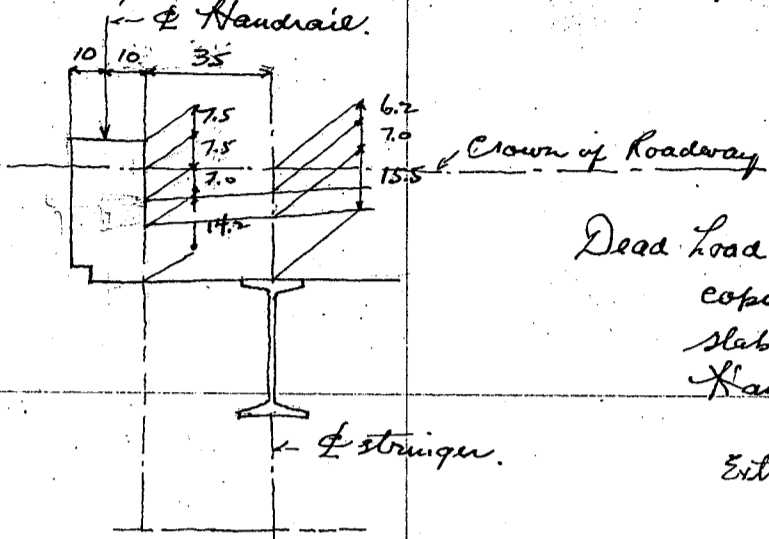 ℄ Handrail.
10 10 35
7.5
7.5
7.0
14.2
6.2
7.0
15.5
Crown of Roadway
Dead Load
slab
℄ stringer.